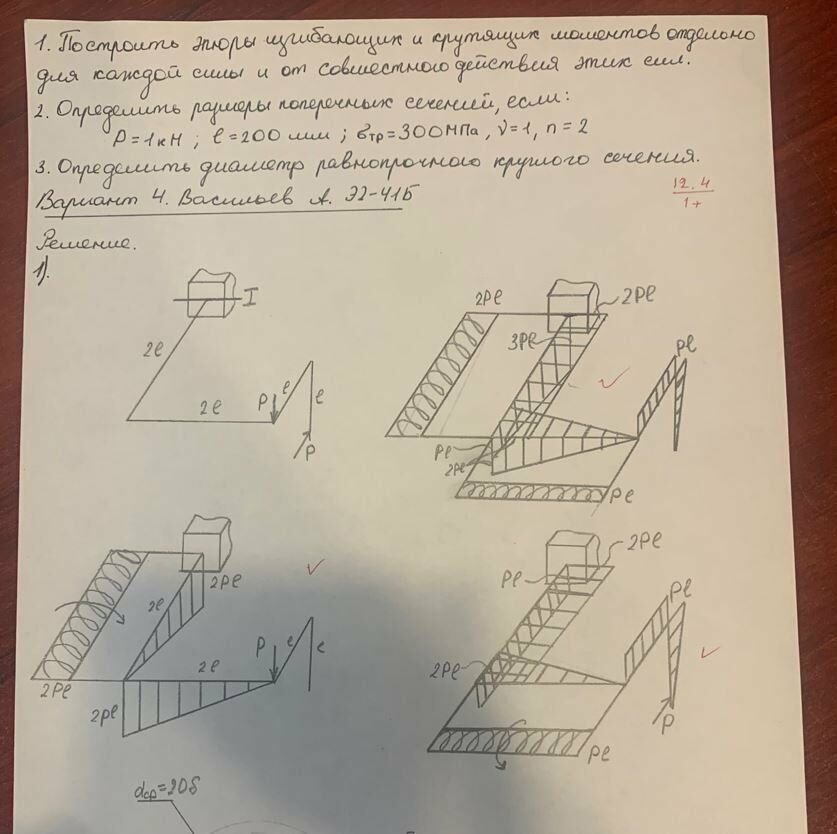 1. Построить эпюры изгибающих и крутящих моментов отдельно
для каждой силы и от совместного действия этих сил.
2. Определить размеры поперечных сечений, если:
P=1кН ; l=200 мм ; σтр=300МПа , ν=1, n=2
3. Определить диаметр равнопрочного круглого сечения.
Вариант 4. Васильев А. Э2-41Б
12.4
1+
Решение.
1).
I
2l
2l
P
l
l
P
2Pl
2Pl
3Pl
Pl
Pl
2Pl
Pl
2l
2Pl
2l
P
l
l
2Pl
2Pl
2Pl
Pl
Pl
2Pl
P
Pl
dср=20δ